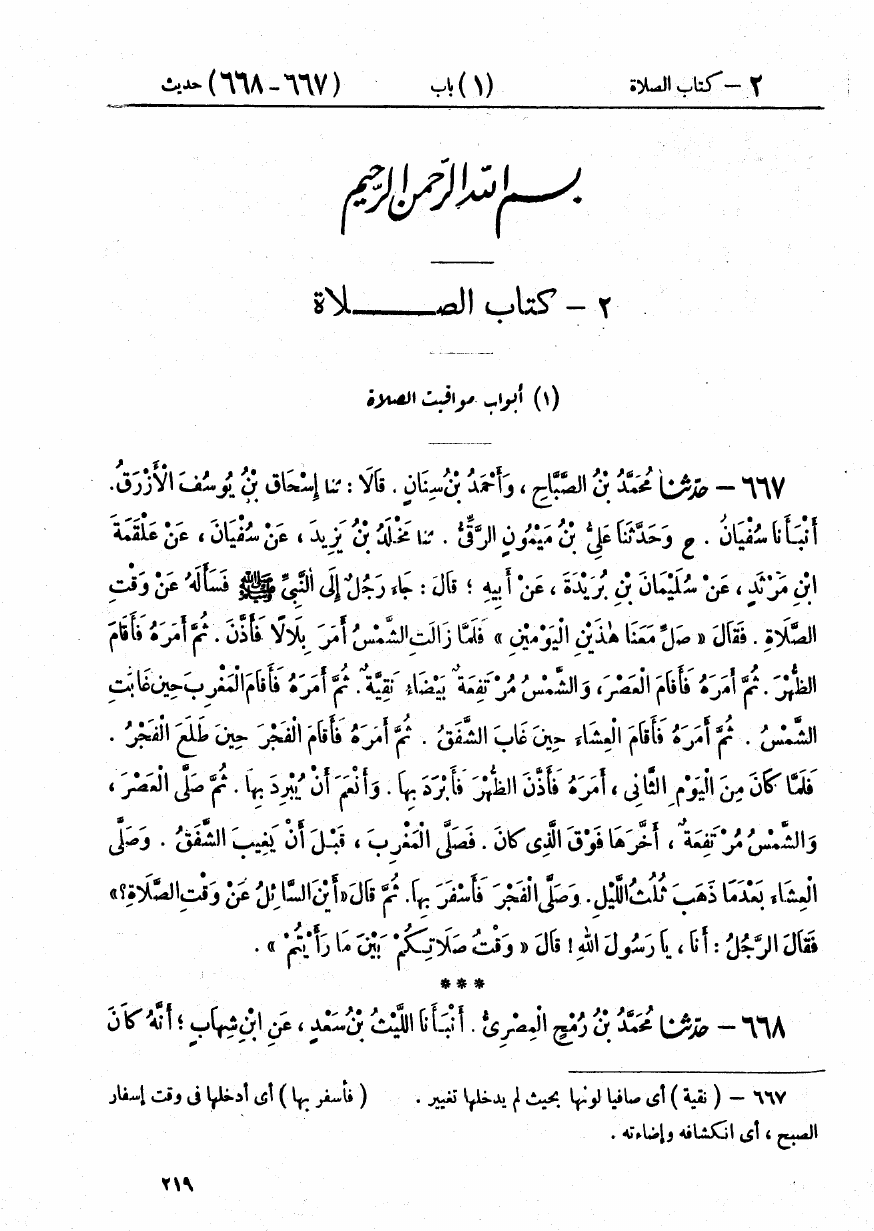 ٢ – كتاب الصلاة (١) باب (٦٦٧-٦٦٨) حديث
بسم الله الرحمن الرحيم
٢ – كتاب الصـــــلاة
(١) أبواب مواقيت الصلاة
٦٦٧ – حَدَّثَنَا مُحَمَّدُ بْنُ الصَّبَّاحِ ، وَأَحْمَدُ بْنُ سِنَانٍ . قَالَا : ثنا إِسْحَاقُ بْنُ يُوسُفَ الْأَزْرَقُ .
أَنْبَأَنَا سُفْيَانُ . ح وَحَدَّثَنَا عَلِيُّ بْنُ مَيْمُونٍ الرَّقِّيُّ . ثنا مَخْلَدُ بْنُ يَزِيدَ ، عَنْ سُفْيَانَ ، عَنْ عَلْقَمَةَ
ابْنِ مَرْثَدٍ ، عَنْ سُلَيْمَانَ بْنِ بُرَيْدَةَ ، عَنْ أَبِيهِ ؛ قَالَ : جَاءَ رَجُلٌ إِلَى النَّبِيِّ ﷺ فَسَأَلَهُ عَنْ وَقْتِ
الصَّلَاةِ . فَقَالَ « صَلِّ مَعَنَا هٰذَيْنِ الْيَوْمَيْنِ » فَلَمَّا زَالَتِ الشَّمْسُ أَمَرَ بِلَالًا فَأَذَّنَ . ثُمَّ أَمَرَهُ فَأَقَامَ
الظُّهْرَ . ثُمَّ أَمَرَهُ فَأَقَامَ الْعَصْرَ ، وَالشَّمْسُ مُرْتَفِعَةٌ بَيْضَاءُ نَقِيَّةٌ . ثُمَّ أَمَرَهُ فَأَقَامَ الْمَغْرِبَ حِينَ غَابَتِ
الشَّمْسُ . ثُمَّ أَمَرَهُ فَأَقَامَ الْعِشَاءَ حِينَ غَابَ الشَّفَقُ . ثُمَّ أَمَرَهُ فَأَقَامَ الْفَجْرَ حِينَ طَلَعَ الْفَجْرُ .
فَلَمَّا كَانَ مِنَ الْيَوْمِ الثَّانِي ، أَمَرَهُ فَأَذَّنَ الظُّهْرَ فَأَبْرَدَ بِهَا . وَأَنْعَمَ أَنْ يُبْرِدَ بِهَا . ثُمَّ صَلَّى الْعَصْرَ ،
وَالشَّمْسُ مُرْتَفِعَةٌ ، أَخَّرَهَا فَوْقَ الَّذِي كَانَ . فَصَلَّى الْمَغْرِبَ ، قَبْلَ أَنْ يَغِيبَ الشَّفَقُ . وَصَلَّى
الْعِشَاءَ بَعْدَمَا ذَهَبَ ثُلُثُ اللَّيْلِ . وَصَلَّى الْفَجْرَ فَأَسْفَرَ بِهَا . ثُمَّ قَالَ « أَيْنَ السَّائِلُ عَنْ وَقْتِ الصَّلَاةِ ؟ »
فَقَالَ الرَّجُلُ : أَنَا ، يَا رَسُولَ اللهِ ! قَالَ « وَقْتُ صَلَاتِكُمْ بَيْنَ مَا رَأَيْتُمْ » .
***
٦٦٨ – حَدَّثَنَا مُحَمَّدُ بْنُ رُمْحٍ الْمِصْرِيُّ . أَنْبَأَنَا اللَّيْثُ بْنُ سَعْدٍ ، عَنِ ابْنِ شِهَابٍ ؛ أَنَّهُ كَانَ
٦٦٧ – ( نقية ) أى صافيا لونها بحيث لم يدخلها تغيير . ( فأسفر بها ) أى أدخلها فى وقت إسفار
الصبح ، أى انكشافه وإضاءته .
٢١٩